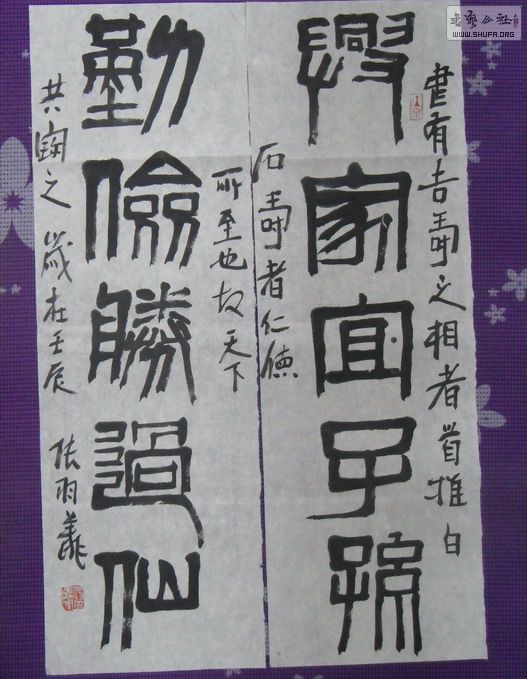 書藝公社
WWW.SHUFA.ORG
書有吉壽之相者首推白
興家宜子孫
石壽者仁德
所至也故天下
勤儉勝過仙
共之 歲在壬辰 張羽